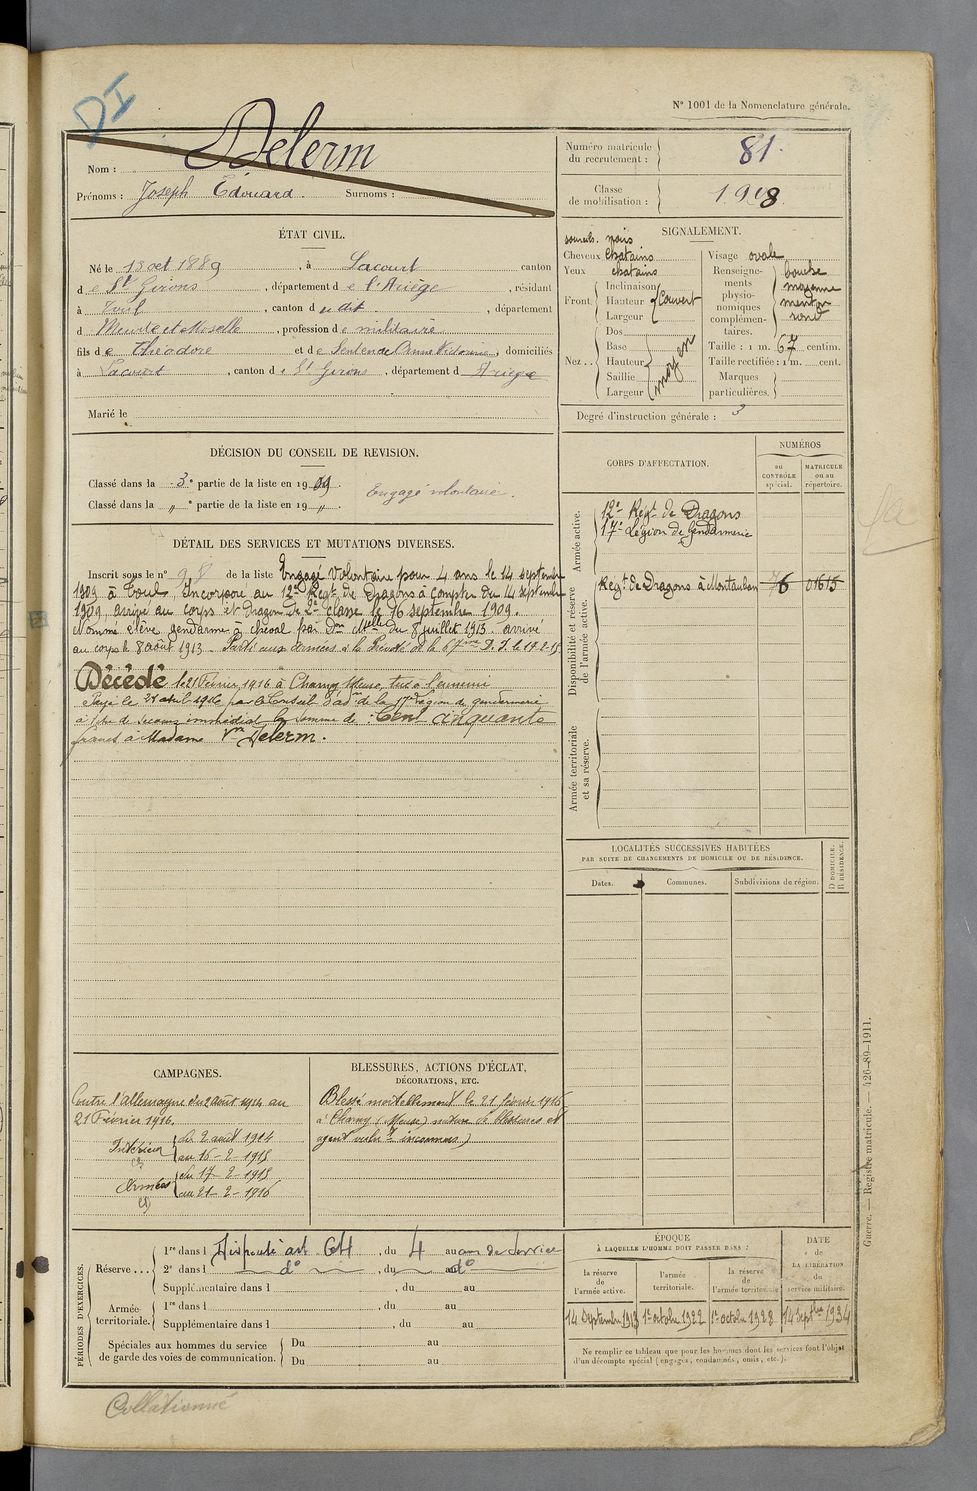 DI
N° 1001 de la Nomenclature générale.
Nom : Delerm
Prénoms : Joseph Édouard. Surnoms :
Numéro matricule du recrutement : 81
Classe de mobilisation : 1908
ÉTAT CIVIL.
Né le 13 oct 1889, à Lacourt canton
de St Girons, département de l'Ariège, résidant
à Toul, canton dudit, département
d Meurthe et Moselle, profession de militaire
fils de Théodore et de Anne Victorine, domiciliés
à Lacourt, canton de St Girons, département d Ariège
Marié le
SIGNALEMENT.
sourcils. noirs
Cheveux chatains
Yeux chatains
Front. Inclinaison Hauteur Largeur couvert
Nez.. Dos Base Hauteur Saillie Largeur moyen
Visage ovale
Renseignements physionomiques complémentaires. bouche moyenne menton rond
Taille : 1 m. 67 centim.
Taille rectifiée : 1 m. cent.
Marques particulières.
Degré d'instruction générale : 3
DÉCISION DU CONSEIL DE REVISION.
Classé dans la 3e partie de la liste en 1909. Engagé volontaire.
Classé dans la " e partie de la liste en 19 ".
DÉTAIL DES SERVICES ET MUTATIONS DIVERSES.
Inscrit sous le n° 98 de la liste Engagé Volontaire pour 4 ans le 14 septembre
1909 à Toul, Incorporé au 12e Régt de Dragons à compter du 14 septembre
1909, arrivé au corps et Dragon de 2e classe le 16 septembre 1909.
Nommé élève gendarme à cheval par Don Mlle du 8 juillet 1913. arrivé
au corps le 8 août 1913. Parti aux armées à la Prévôté de la 67me D.I. le 17.2.15
Décédé le 21 Février 1916 à Charny Meuse, tué à l'ennemi
Payé le 21 avril 1916 par le Conseil d'adon de la 17e Légion de gendarmerie
à titre de secours immédiat la somme de Cent cinquante
francs à Madame Vve Delerm.
CORPS D'AFFECTATION.
NUMÉROS
au CONTRÔLE spécial.
MATRICULE ou au répertoire.
Armée active.
12e Régt de Dragons
17e Légion de Gendarmerie
Disponibilité et réserve de l'armée active.
Régt de Dragons à Montauban 76 01615
Armée territoriale et sa réserve.
LOCALITÉS SUCCESSIVES HABITÉES
PAR SUITE DE CHANGEMENTS DE DOMICILE OU DE RÉSIDENCE.
Dates. Communes. Subdivisions de région. D DOMICILE. R RÉSIDENCE.
CAMPAGNES.
Contre l'Allemagne du 2 août 1914 au
21 Février 1916.
Intérieur du 2 août 1914
au 16-2-1915
Armées du 17-2-1915
au 21-2-1916
BLESSURES, ACTIONS D'ÉCLAT,
DÉCORATIONS, ETC.
Blessé mortellement le 21 février 1916
à Charny (Meuse) nature de blessures et
agent inconnus)
PÉRIODES D'EXERCICES.
Réserve... 1re dans l Dispensé art. 64, du 4 au ans de service
2e dans l d°, du au d°
Supplémentaire dans l, du au
Armée territoriale. 1re dans l, du au
Supplémentaire dans l, du au
Spéciales aux hommes du service de garde des voies de communication. Du au
Du au
ÉPOQUE
À LAQUELLE L'HOMME DOIT PASSER DANS :
la réserve de l'armée active. l'armée territoriale. la réserve de l'armée territoriale
DATE de LA LIBÉRATION du service militaire.
14 Septembre 1913 1er octobre 1922 1er octobre 1928 14 Septbre 1934
Ne remplir ce tableau que pour les hommes dont les services font l'objet
d'un décompte spécial (engagés, condamnés, omis, etc.).
Guerre. — Registre matricule. — 426-89-1911.
Collationné